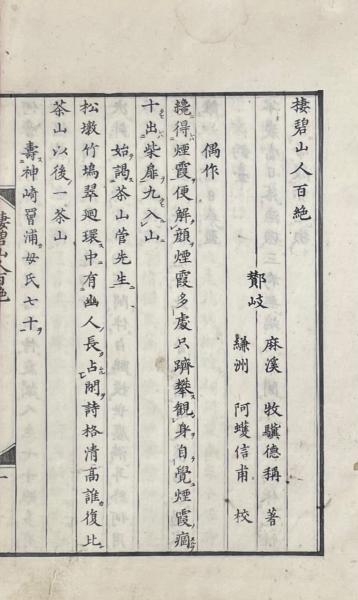 棲碧山人百絶
鄭岐 麻溪 牧驥德稱 著
縑洲 阿蠖信甫 校
偶作
纔得煙霞便解顔煙霞多處只躋攀観身自覺煙霞痼
十出柴扉九入山
始謁茶山菅先生
松墩竹塢翠廻環中有幽人長占閒詩格清高誰復比
茶山以後一茶山
壽神崎

浦母氏七十
棲碧山人百絶
一